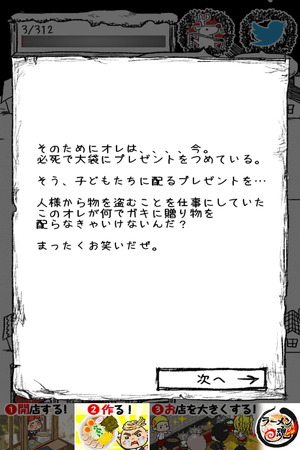 3/312
そのためにオレは、、、、今。
必死で大袋にプレゼントをつめている。
そう、子どもたちに配るプレゼントを…
人様から物を盗むことを仕事にしていた
このオレが何でガキに贈り物を
配らなきゃいけないんだ？
まったくお笑いだぜ。
次へ
①開店する!
②作る!
③お店を大きくする!
ラーメン